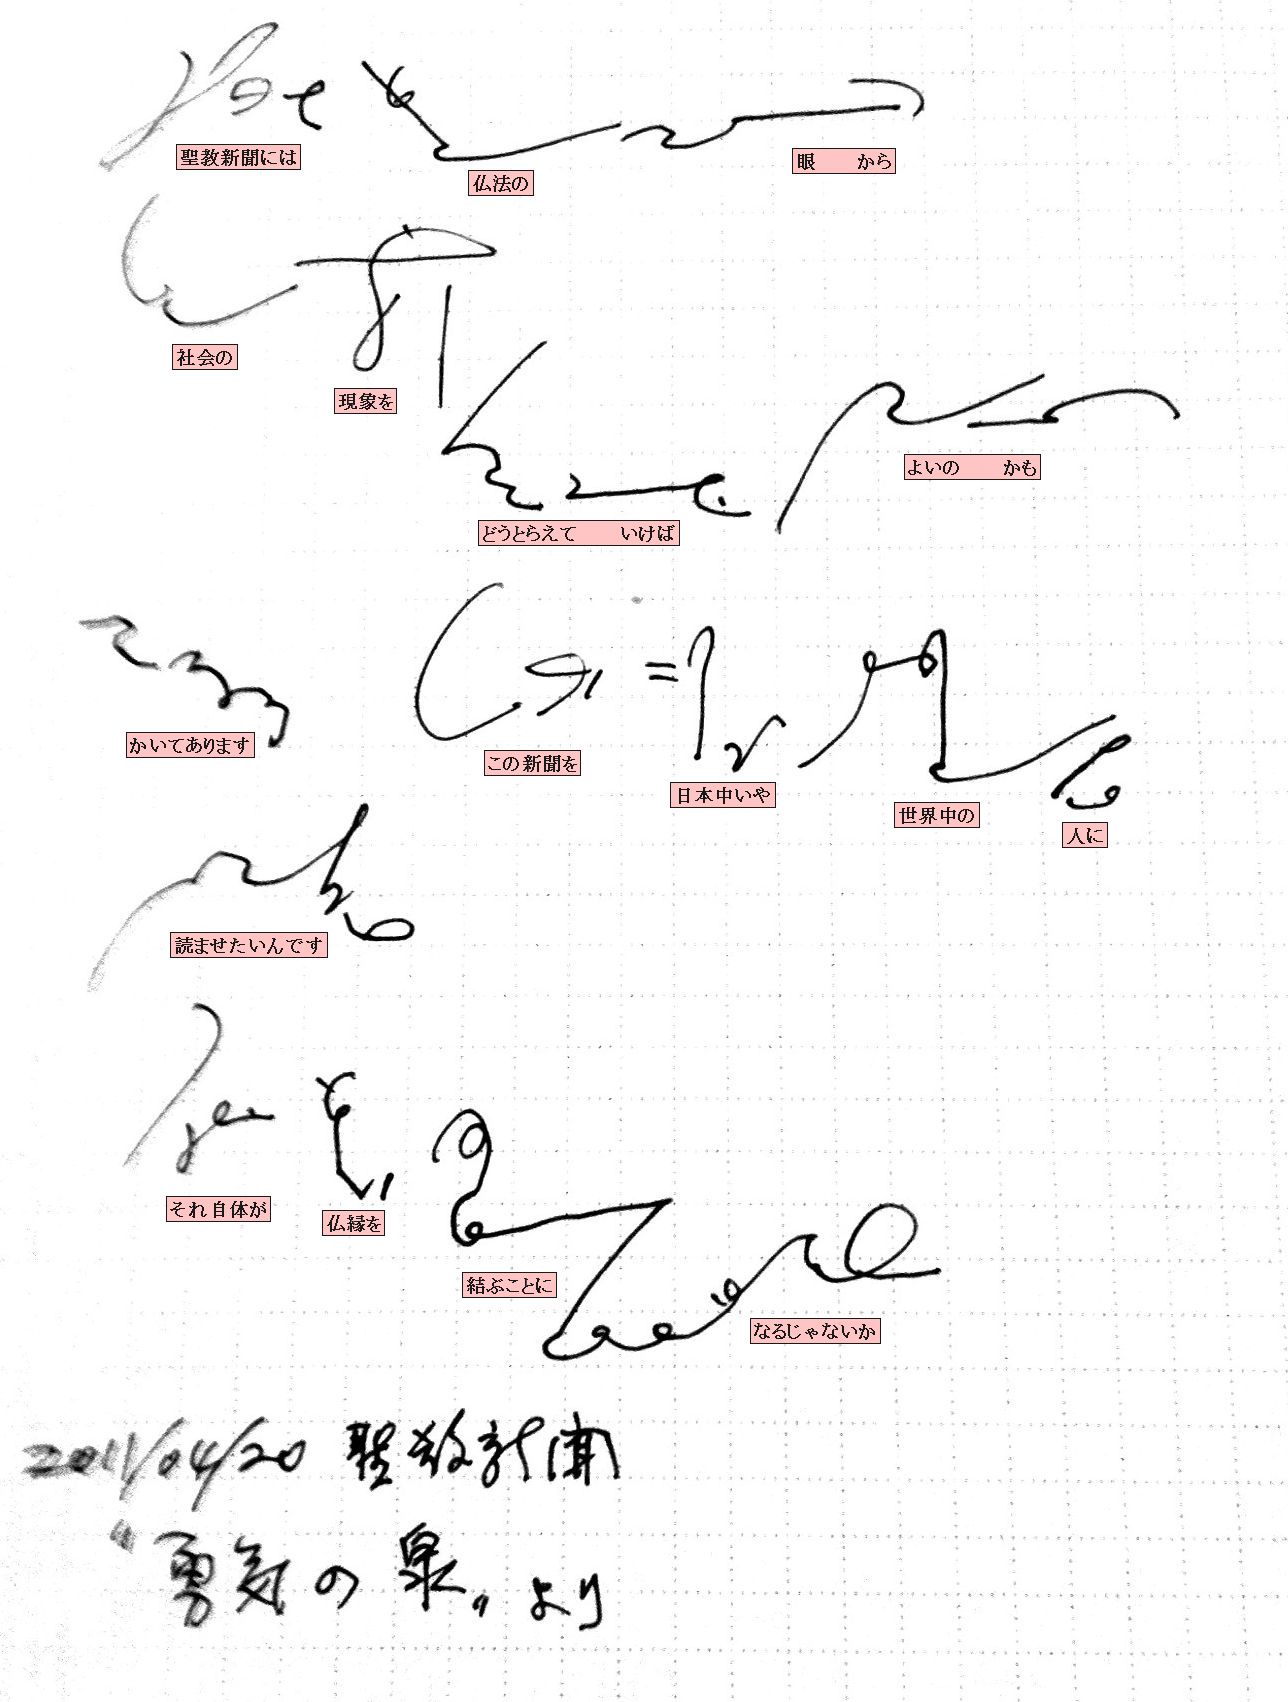 聖教新聞には 仏法の 眼 から
社会の 現象を
どうとらえて いけば よいの かも
かいてあります この新聞を 日本中いや 世界中の 人に
読ませたいんです
それ自体が 仏縁を
結ぶことに なるじゃないか
2011/04/20 聖教新聞
〝勇気の泉〟より